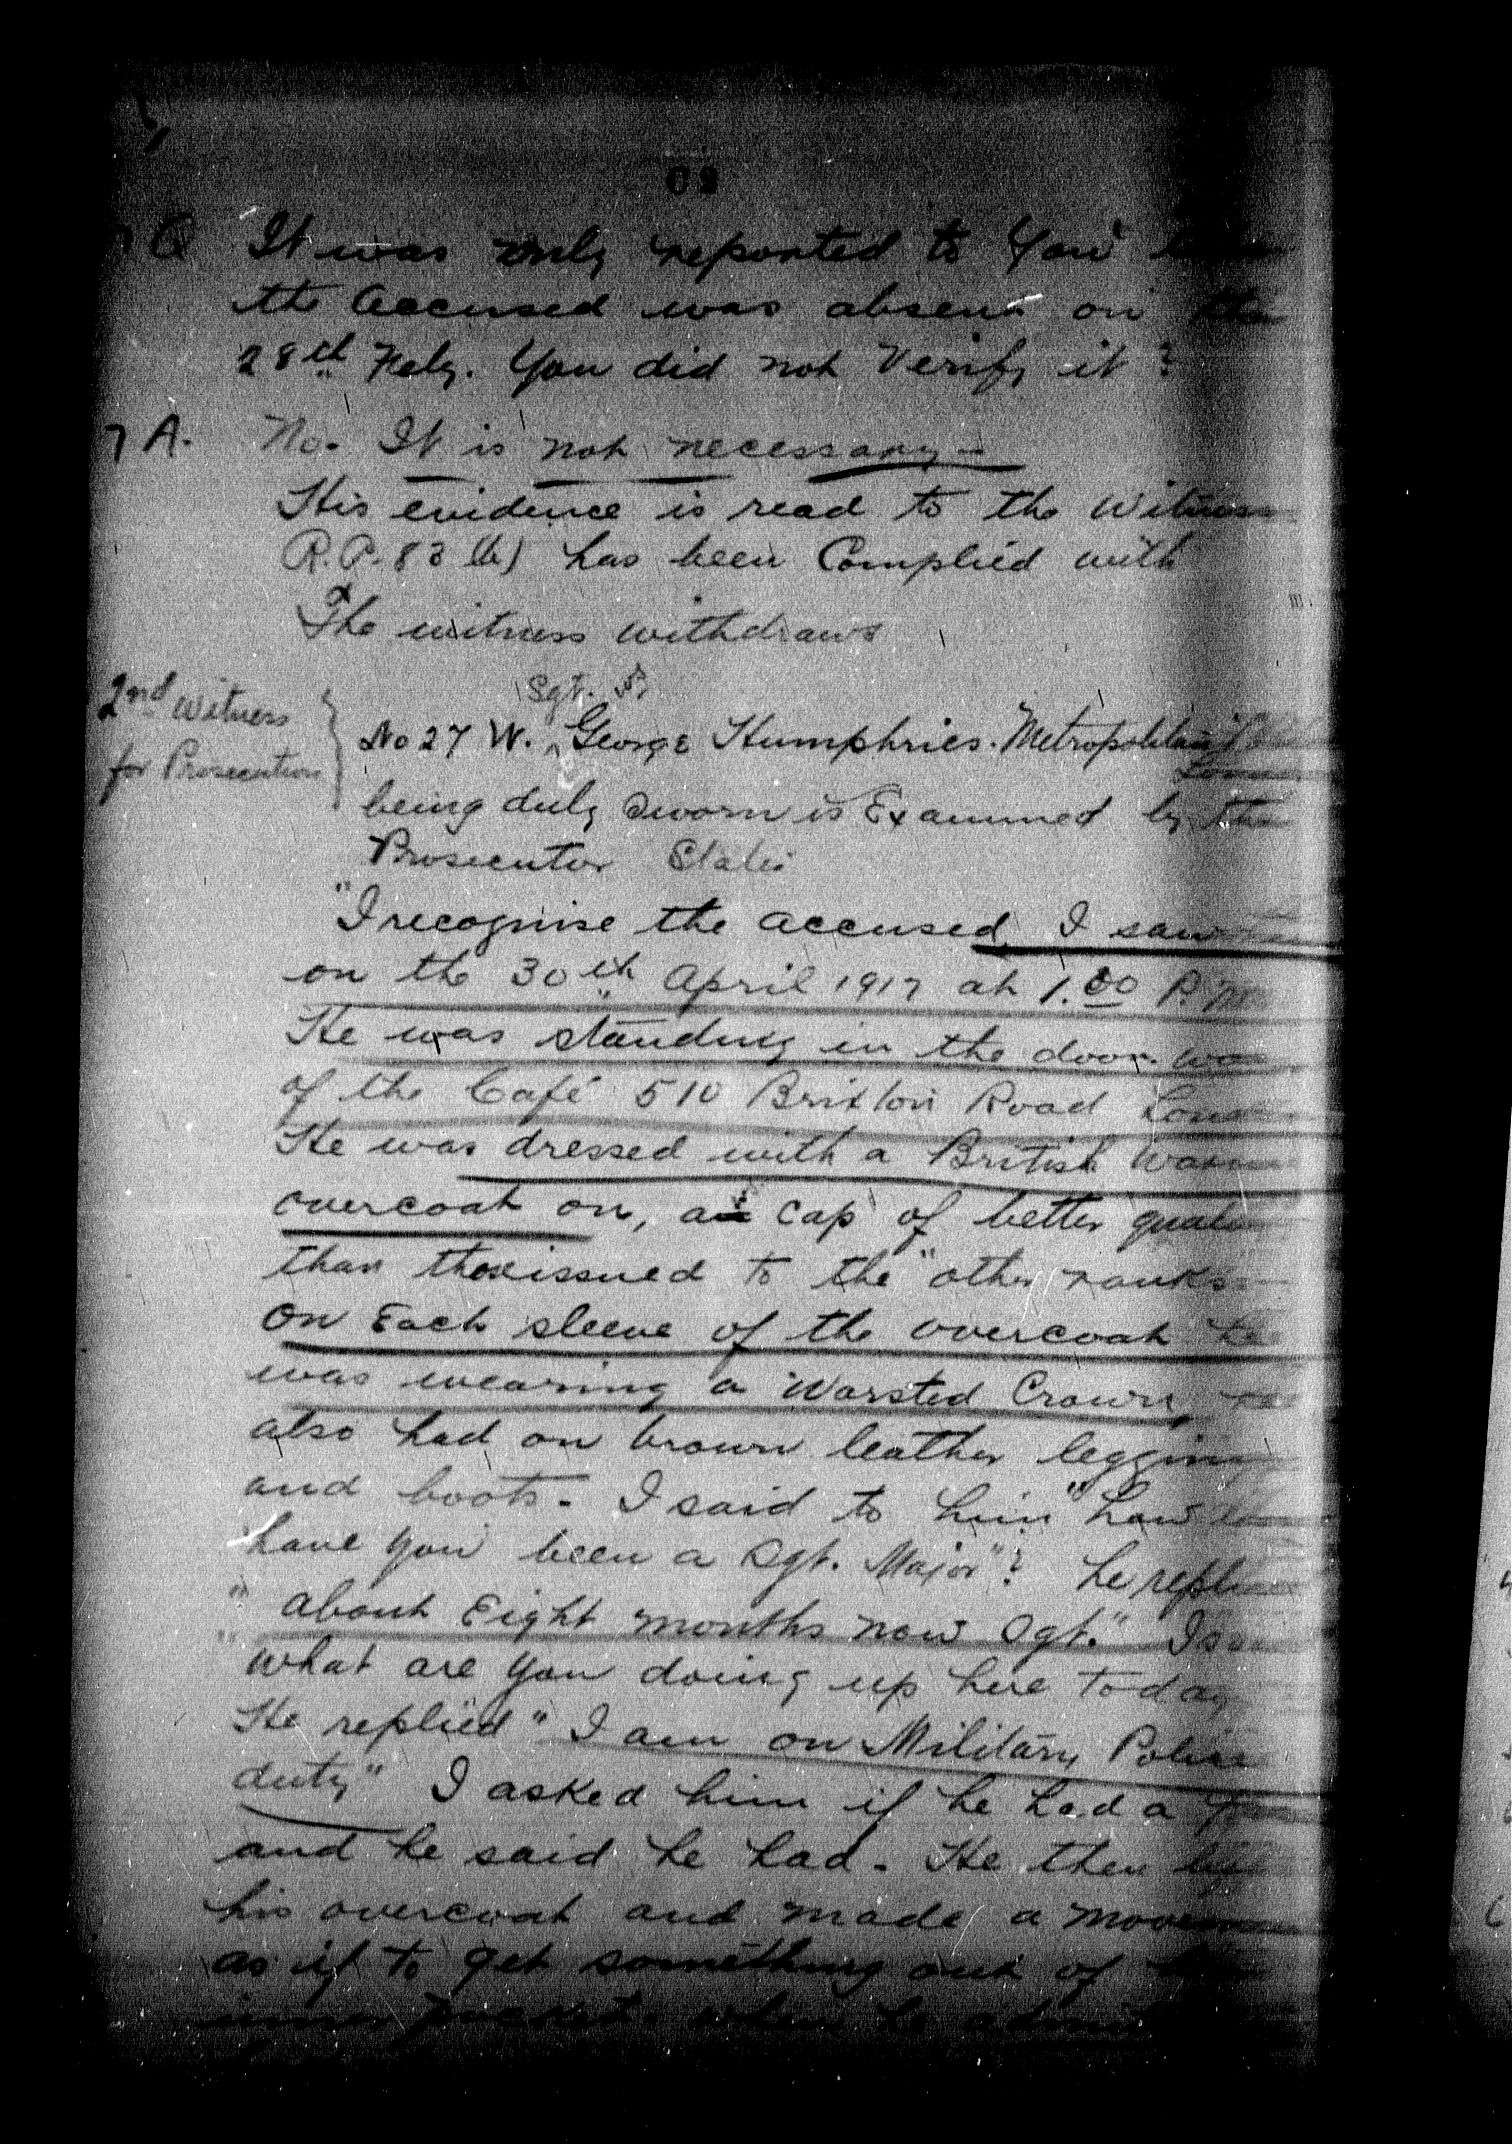 09
7 Q It was only reported to You
the accused was absent on the
28th Feby. You did not Verify it?
7 A. No. It is not necessary -
His evidence is read to the witness
R.P. 83 (b) has been Complied with
The witness withdraws
2nd witness
for Prosecution
Sgt.
No 27 W. George Humphries. Metropolitan
being duly sworn is Examined by the
Prosecutor States
"I recognise the accused, I saw
on the 30th April 1917 at 1.00 P.m
He was standing in the door-way
of the Café 510 Brixton Road London
He was dressed with a British Warm
overcoat on, a cap of better
than those issued to the "other ranks
on Each sleeve of the overcoat he
was wearing a Worsted Crown,
also had on brown leather leggings
and boots. I said to him "how long
have you been a Sgt. Major"? he replied
"about Eight months now Sgt." I said
"what are you doing up here today
He replied "I am on Military Police
duty" I asked him if he had a
and he said he had. He then
his overcoat and made a movement
as if to get something out of
inner pocket when he